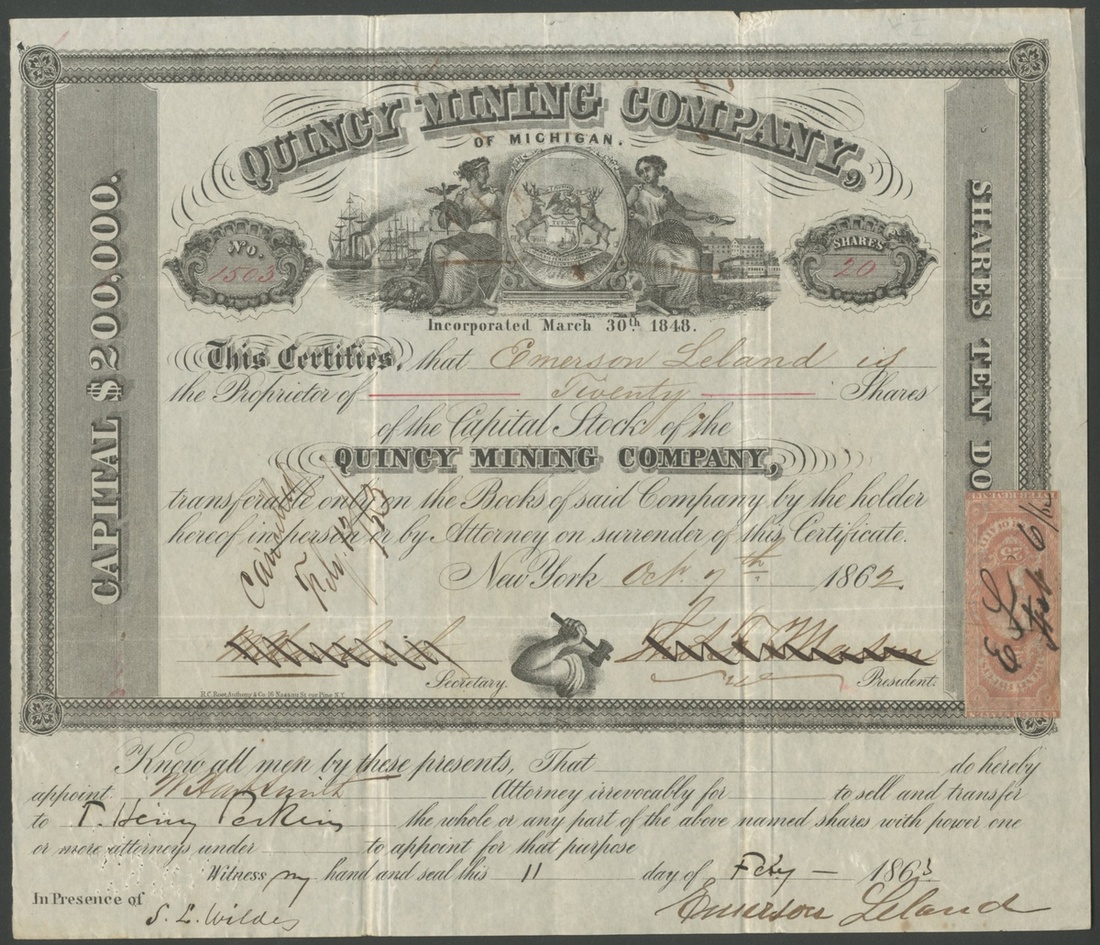 QUINCY MINING COMPANY,
OF MICHIGAN.
No. 1503
SHARES 20
CAPITAL $200,000.
SHARES TEN DO
Incorporated March 30th 1848.
This Certifies, that Emerson Leland is
the Proprietor of Twenty Shares
of the Capital Stock of the
QUINCY MINING COMPANY,
transferable only on the Books of said Company by the holder
hereof in person or by Attorney on surrender of this Certificate.
Cancelled
Feby 12/63
New York Oct. 7th 1862
Secretary.
President.
R.C. Root, Anthony & Co. 16 Nassau St. cor Pine N.Y.
25
E L
Know all men by these presents, That do hereby
appoint Attorney irrevocably for to sell and transfer
to T. Henry Perkins the whole or any part of the above named shares with power one
or more attorneys under to appoint for that purpose
Witness my hand and seal this 11 day of Feby 1863
In Presence of
S. L. Wildes
Emerson Leland